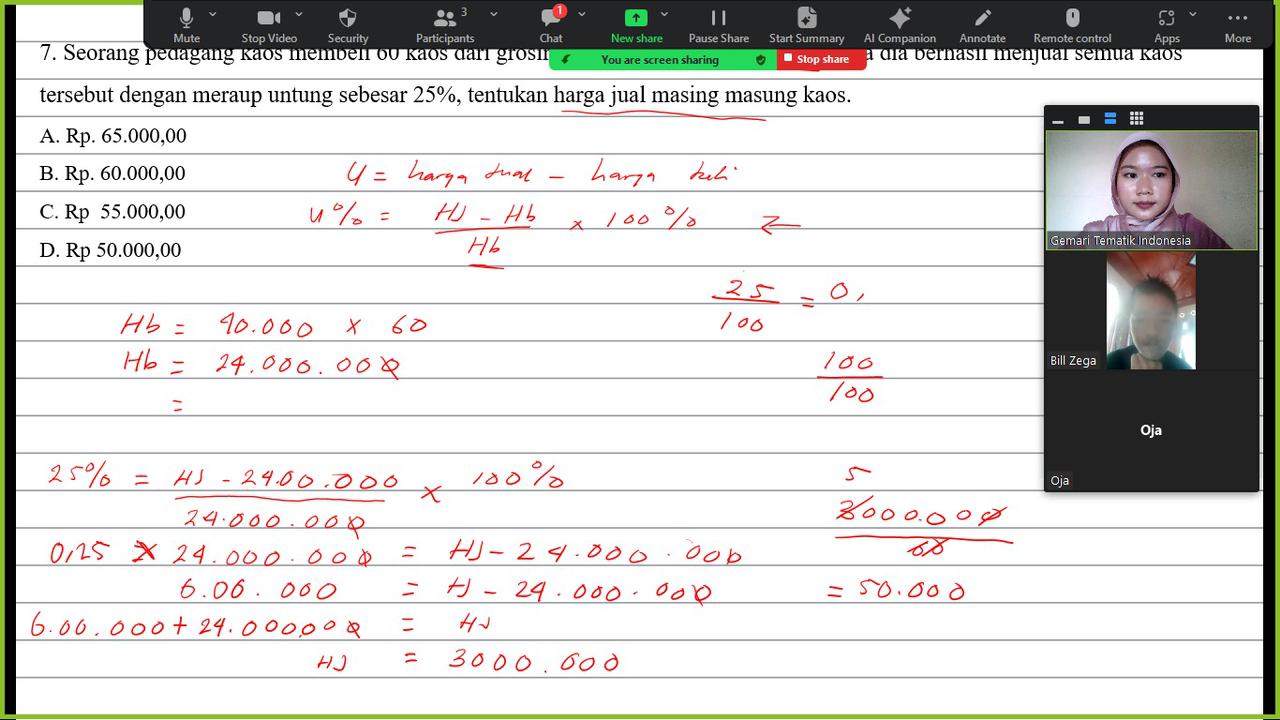 Mute Stop Video Security Participants 3 Chat 1 New share Pause Share Start Summary AI Companion Annotate Remote control Apps More
You are screen sharing Stop share
7. Seorang pedagang kaos membeli 60 kaos dari grosir dia berhasil menjual semua kaos
tersebut dengan meraup untung sebesar 25%, tentukan harga jual masing masung kaos.
A. Rp. 65.000,00
B. Rp. 60.000,00
C. Rp 55.000,00
D. Rp 50.000,00
U = harga jual - harga beli
u% = HJ - Hb / Hb x 100%
25 / 100 = 0,
100 / 100
Hb = 40.000 x 60
Hb = 24.000.000
=
25% = HJ - 2400.000 / 24.000.000 x 100%
0,25 x 24.000.000 = HJ - 24.000.000
6.00.000 = HJ - 24.000.000
6.00.000 + 24.000.000 = HJ
HJ = 3000.000
5
3000.000 / 60
= 50.000
Gemari Tematik Indonesia
Bill Zega
Oja
Oja